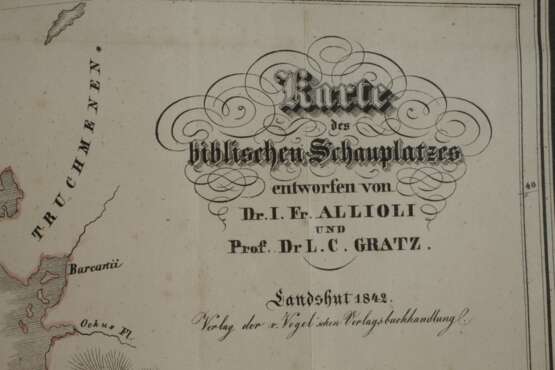 Karte
des
biblischen Schauplatzes
entworfen von
Dr. I. Fr. ALLIOLI
UND
Prof. Dr L. C. GRATZ.
Landshut 1842.
Verlag der v. Vogel'schen Verlagsbuchhandlung.
TRUCHMENEN.
Barcanii
Ochus Fl.
40